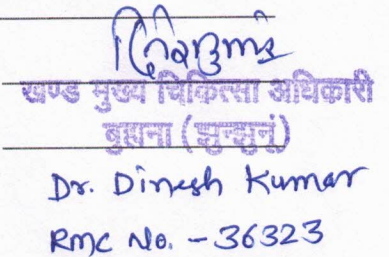 खण्ड मुख्य चिकित्सा अधिकारी
बुहाना (झुन्झुनूं)
Dr. Dinesh Kumar
RMC No. - 36323